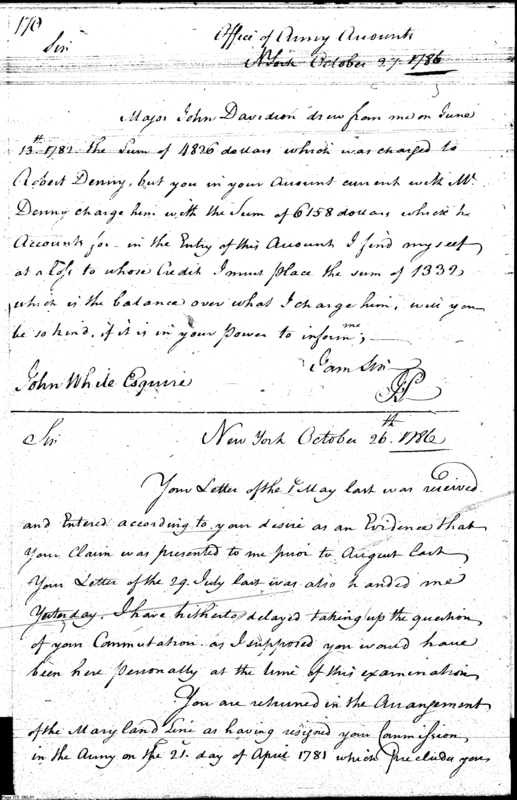 170
Office of Army Accounts
Sir
N York October 27. 1786
Major John Davidson drew from me on June
13th 1782 the Sum of 4826 dollars which was charged to
Robert Denny, but you in your Account current with Mr.
Denny charge him with the Sum of 6158 dollars which he
Accounts for - in the Entry of this Account I find myself
at a Loss to whose Credit I must place the sum of 1332,
which is the balance over what I charge him, will you
be so kind, if it is in your power to inform me;
I am Sir
John White Esquire
Sir
New York October 26th 1786
Your Letter of the 1t May last was received
and Entered according to your desire as an Evidence that
your Claim was presented to me prior to August last
Your Letter of the 29 July last was also handed me
Yesterday, I have hitherto delayed taking up the question
of your Commutation as I supposed you would have
been here personally at the time of this examination
You are returned in the Arrangement
of the Maryland Line as having resigned your Commission
in the Army on the 21. day of April 1781 which precludes you